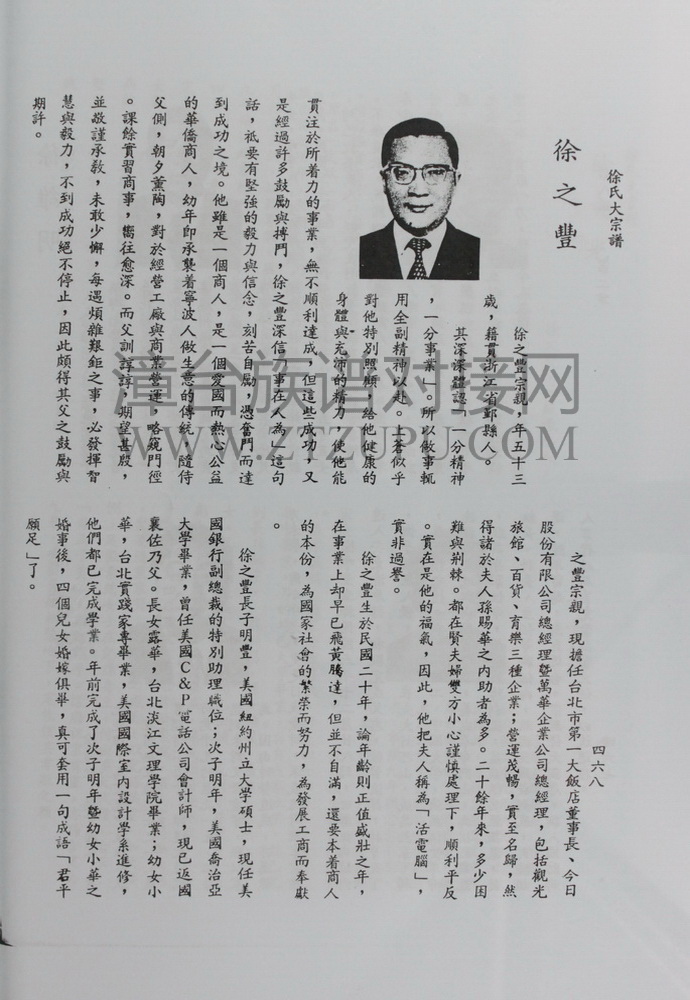 徐氏大宗譜
四六八
徐之豐
徐之豐宗親，年五十三
歲，籍貫浙江省鄞縣人。
其深深體認「一分精神
，一分事業」。所以做事輒
用全副精神以赴。上蒼似乎
對他特別照顧，給他健康的
身體與充沛的精力，使他能
貫注於所着力的事業，無不順利達成，但這些成功，又
是經過許多鼓勵與搏鬥，徐之豐深信「事在人為」這句
話，祗要有堅強的毅力與信念，刻苦自勵，憑奮鬥而達
到成功之境。他雖是一個商人，是一個愛國而熱心公益
的華僑商人，幼年即承襲着寧波人做生意的傳統，隨侍
父側，朝夕薰陶，對於經營工廠與商業營運，略窺門徑
。課餘實習商事，嚮往愈深。而父訓諄諄，期望甚殷，
並敬謹承教，未敢少懈，每遇煩雜艱鉅之事，必發揮智
慧與毅力，不到成功絕不停止，因此頗得其父之鼓勵與
期許。
之豐宗親，現擔任台北市第一大飯店董事長、今日
股份有限公司總經理暨萬華企業公司總經理，包括觀光
旅館、百貨、育樂三種企業；營運茂暢，實至名歸，然
得諸於夫人孫賜華之內助者為多。二十餘年來，多少困
難與荆棘。都在賢夫婦雙方小心謹慎處理下，順利平反
。實在是他的福氣，因此，他把夫人稱為「活電腦」，
實非過譽。
徐之豐生於民國二十年，論年齡則正值盛壯之年，
在事業上却早已飛黃騰達，但並不自滿，還要本着商人
的本份，為國家社會的繁榮而努力，為發展工商而奉獻
。
徐之豐長子明豐，美國紐約州立大學碩士，現任美
國銀行副總裁的特別助理職位；次子明年，美國喬治亞
大學畢業，曾任美國C&P電話公司會計師，現已返國
襄佐乃父。長女露華，台北淡江文理學院畢業；幼女小
華，台北實踐家專畢業，美國國際室內設計學系進修，
他們都已完成學業。年前完成了次子明年暨幼女小華之
婚事後，四個兒女婚嫁俱舉，真可套用一句成語「君平
願足」了。
漳台族谱对接网
WWW.ZTZUPU.COM